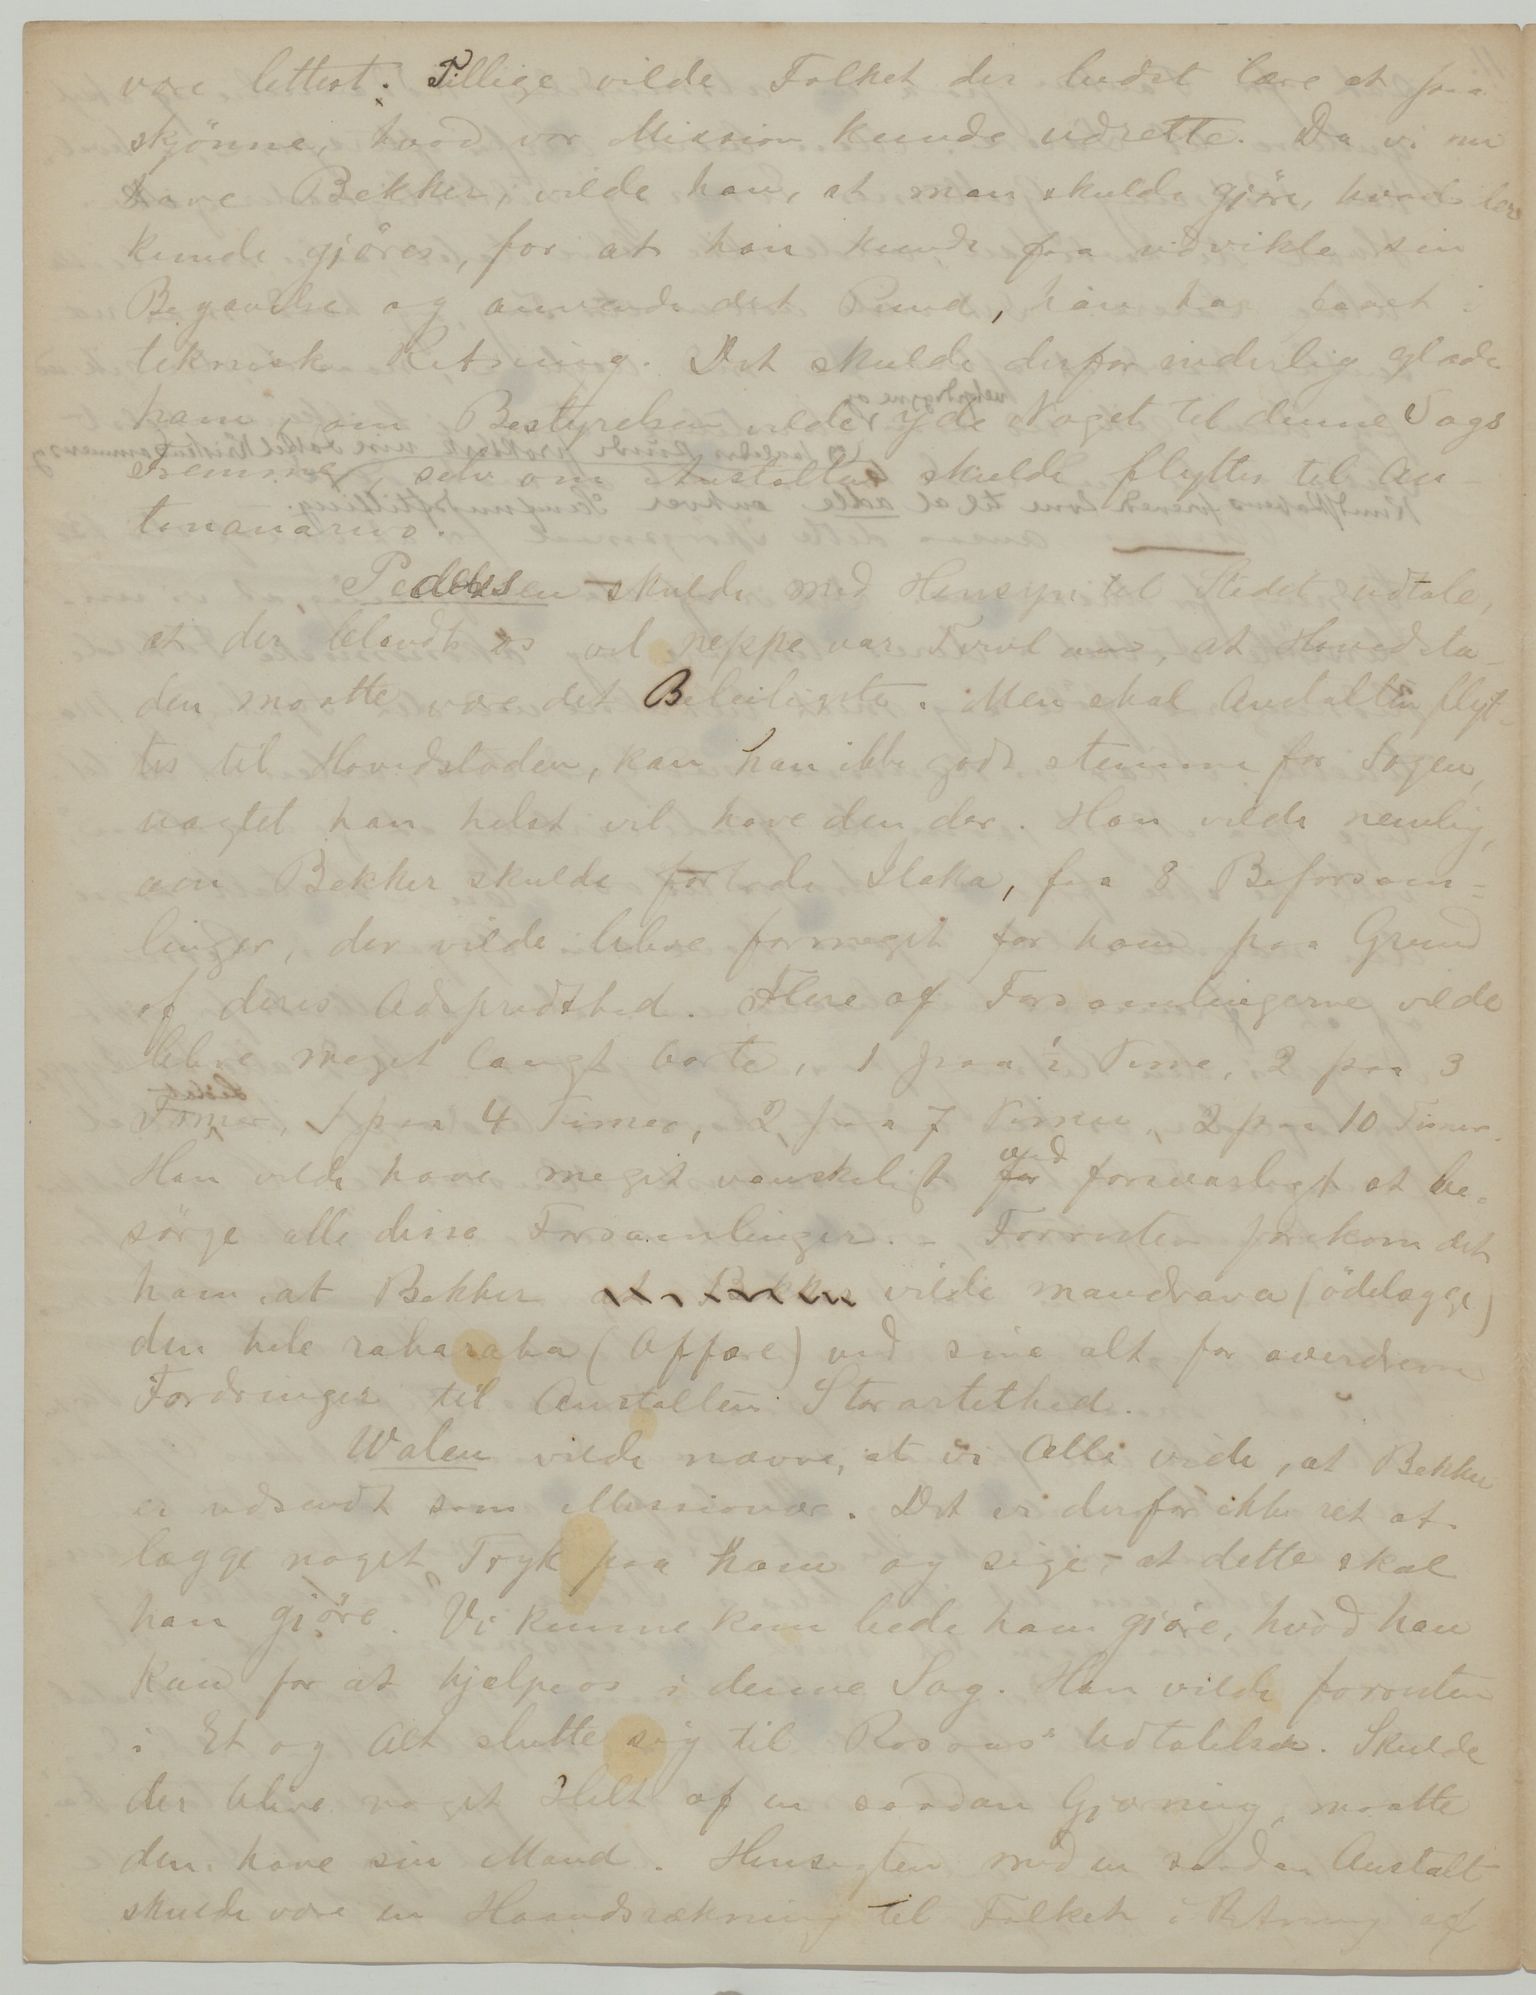 være lettest. Tillige vilde Folket der bedst lære at faa
skjönne, hvad vor Mission kunde udrette. Da vi nu
have Bekker, vilde han, at man skulde gjöre, hvad der
kunde gjöres, for at han kunde faa udvikle sin
Begavelse og anvende det Pund, han har faaet i
teknisk Retning. Det skulde derfor inderlig glæde
ham, om Bestyrelsen vilde yde Noget til denne Sags
Fremme, selv om Anstalten skulde flyttes til An
tananarivo.
Pedersen skulde med Hensyn til Stedet udtale,
at der blandt os vel neppe var Tvivl om, at Hovedsta-
den maatte være det Beleiligste. Men skal Anstalten flyt-
tes til Hovedstaden, kan han ikke godt stemme for Sagen,
uagtet han helst vil have den der. Han vilde nemlig,
om Bekker skulde forlade Ilaka, faa 8 Beforsam-
linger, der vilde blive formeget for ham paa Grund
af deres Adspredthed. Flere af Forsamlingerne vilde
blive meget langt borte, 1 paa ½ Time, 2 paa 3
Timer, 1 paa 4 Timer, 2 paa 7 Timer, 2 paa 10 Timer.
Han vilde have meget vanskeligt for ved forsvarligt at be-
sörge alle disse Forsamlinger. - Foruden forekom det
ham, at Bekker vilde mandrava (ödelægge)
den hele raharaha (Affære) ved sine alt for overdrevne
Fordringer til Anstaltens Storartethed.
Walen vilde nævne, at vi Alle vide, at Bekker
er udsendt som Missionær. Det er derfor ikke ret at
lægge noget Tryk paa ham og sige, at dette skal
han gjöre. Vi kunne kun bede ham gjöre, hvad han
kan for at hjælpe os i denne Sag. Han vilde foruden
i Et og Alt slutte sig til Rosaas's Udtalelse. Skulde
der blive noget Helt af en saadan Gjerning, maatte
den have sin Mand. Hensigten med en saadan Anstalt
skulde være en Haandsrækning til Folket i Retning af